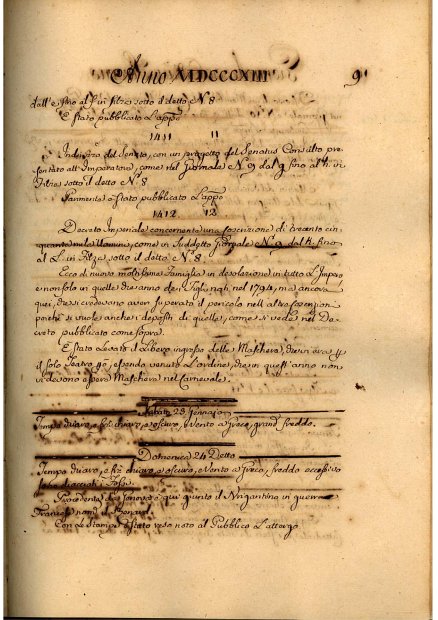 Anno MDCCCXIII 9
dall' e fino al f in filza sotto il detto N. 8
E stato pubblicato l'appo
1411 11
Indirizzo del Senato, con un progetto del Senatus Consulto pre
sentato all' Imperatore, come nel Giornale N. 9 dal g fino al h in
Filza sotto il detto N. 8
Parimente è stato pubblicato l'appo
1412 12
Decreto Imperiale concernente una coscrizione di trecento cin
quanta mila Uomini, come in suddetto Giornale N. 9 dal h fino
al l in Filza sotto il detto N. 8
Ecco di nuovo moltissime Famiglie in desolazione in tutto l'Impero
e non solo in quelle che anno de' Figli nati nel 1794, ma ancora
quei, che si credevano aver superato il pericolo nell' altre coscrizioni
poichè si vuole anche i depositi di quelle, come si vede nel De
creto pubblicato come sopra.
E stato levato il libero ingresso delle Maschere, che in ora
il solo Teatro essendo venuto l'ordine, che in quest' anno non
vi devono essere Maschere nel Carnevale.
Sabato 23 Gennajo
Tempo chiaro, e fra chiaro, e oscuro, Vento a Greco, grand freddo.
Domenica 24 Detto
Tempo chiaro, e fra chiaro, e oscuro, e Vento a Greco, freddo eccessivo
Procedente da Genova è qui giunto il Brigantino in guerra
Francese nom.
Con le Stampe è stato reso noto al Pubblico l'attergo.